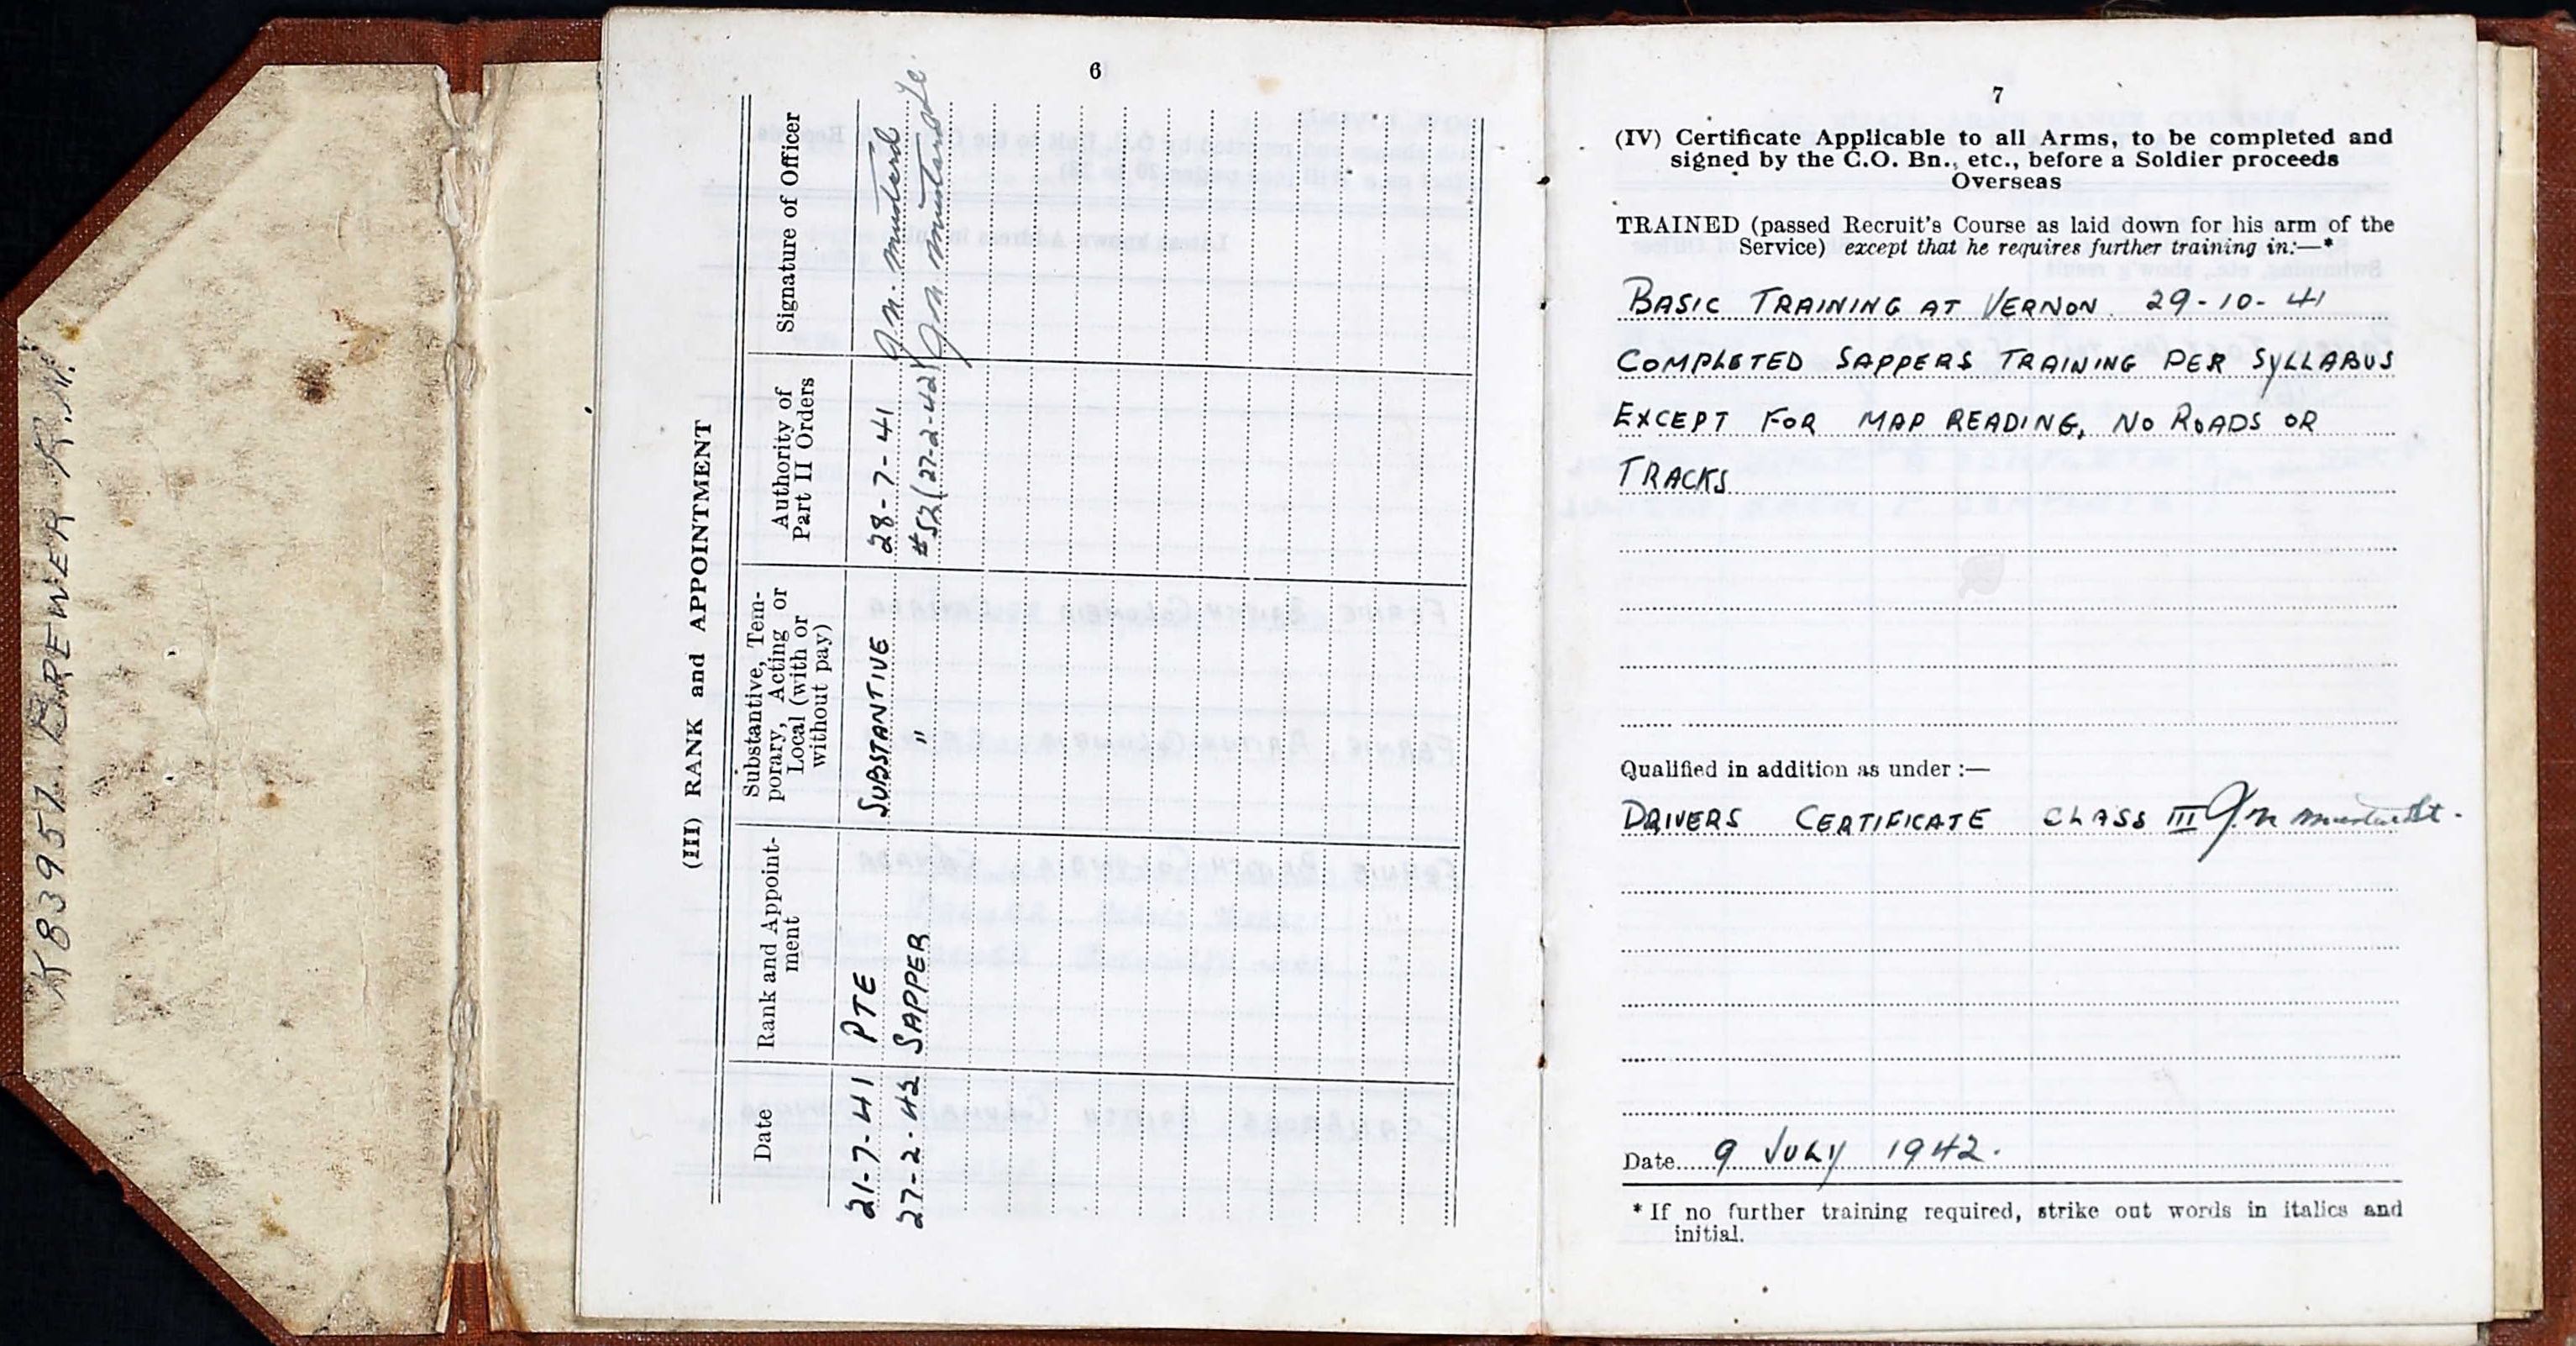 K83957 BREWER R.W.
6
(III) RANK and APPOINTMENT
Date
Rank and Appoint-
ment
Substantive, Tem-
porary, Acting or
Local (with or
without pay)
Authority of
Part II Orders
Signature of Officer
21-7-41 PTE SUBSTANTIVE 28-7-41
27-2-42 SAPPER " #52(27-2-42)
7
(IV) Certificate Applicable to all Arms, to be completed and
signed by the C.O. Bn., etc., before a Soldier proceeds
Overseas
TRAINED (passed Recruit's Course as laid down for his arm of the
Service) except that he requires further training in:—*
BASIC TRAINING AT VERNON. 29-10-41
COMPLETED SAPPERS TRAINING PER SYLLABUS
EXCEPT FOR MAP READING, NO ROADS OR
TRACKS
Qualified in addition as under :—
DRIVERS CERTIFICATE CLASS III
Date 9 JULY 1942.
* If no further training required, strike out words in italics and
initial.